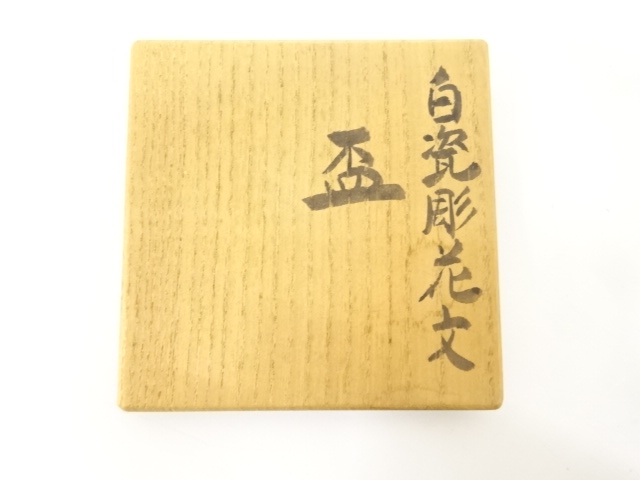 白瓷彫花文
盃